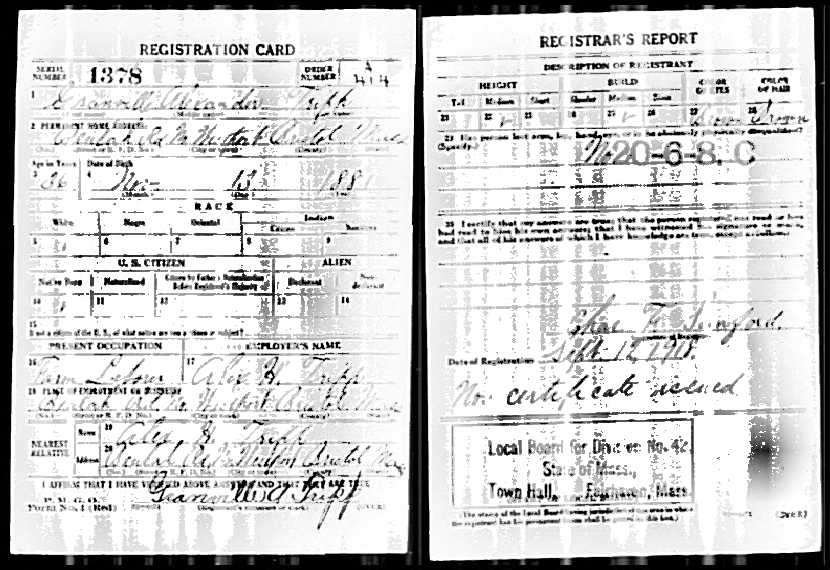 REGISTRATION CARD
SERIAL NUMBER 1378 ORDER NUMBER A 414
1 Granville Alexander Tripp
2 PERMANENT HOME ADDRESS:
Beulah Rd N. Westport Bristol Mass
Age in Years Date of Birth
3 36 4 Nov 13 1881
RACE
White Negro Oriental Indian
Citizen
5 6 7 8 9
U. S. CITIZEN ALIEN
Native Born Naturalized Citizen by Father's Naturalization Before Registrant's Majority Declarant Non-declarant
10 11 12 13 14
15
If not a citizen of the U. S., of what nation are you a citizen or subject?
PRESENT OCCUPATION EMPLOYER'S NAME
16 17
Farm Labor Alex H. Tripp
18 PLACE OF EMPLOYMENT OR BUSINESS
Beulah Rd No. Westport Bristol Mass
NEAREST RELATIVE
Name 19 Alex H. Tripp
Address 20 Beulah Rd No Westport Bristol Mass
I AFFIRM THAT I HAVE VERIFIED ABOVE ANSWERS AND THAT THEY ARE TRUE
P. M. G. O.
Form No. 1 (Red) Granville A Tripp (OVER)
REGISTRAR'S REPORT
DESCRIPTION OF REGISTRANT
HEIGHT BUILD COLOR OF EYES COLOR OF HAIR
Tall Medium Short Slender Medium Stout
21 22 23 24 25 26 27 Brown 28 Brown
29 Has person lost arm, leg, hand, eye, or is he obviously physically disqualified?
(Specify.)
No 20-6-8. C
30 I certify that my answers are true; that the person registered has read or has
had read to him his own answers; that I have witnessed his signature or mark,
and that all of his answers of which I have knowledge are true, except as follows:
Date of Registration Sept. 12, 1918.
No certificate issued
Local Board for Division No. 42,
State of Mass.,
Town Hall, Fairhaven, Mass.
(The stamp of the Local Board having jurisdiction of the area in which
the registrant has his permanent home shall be placed in this box.)
(OVER)